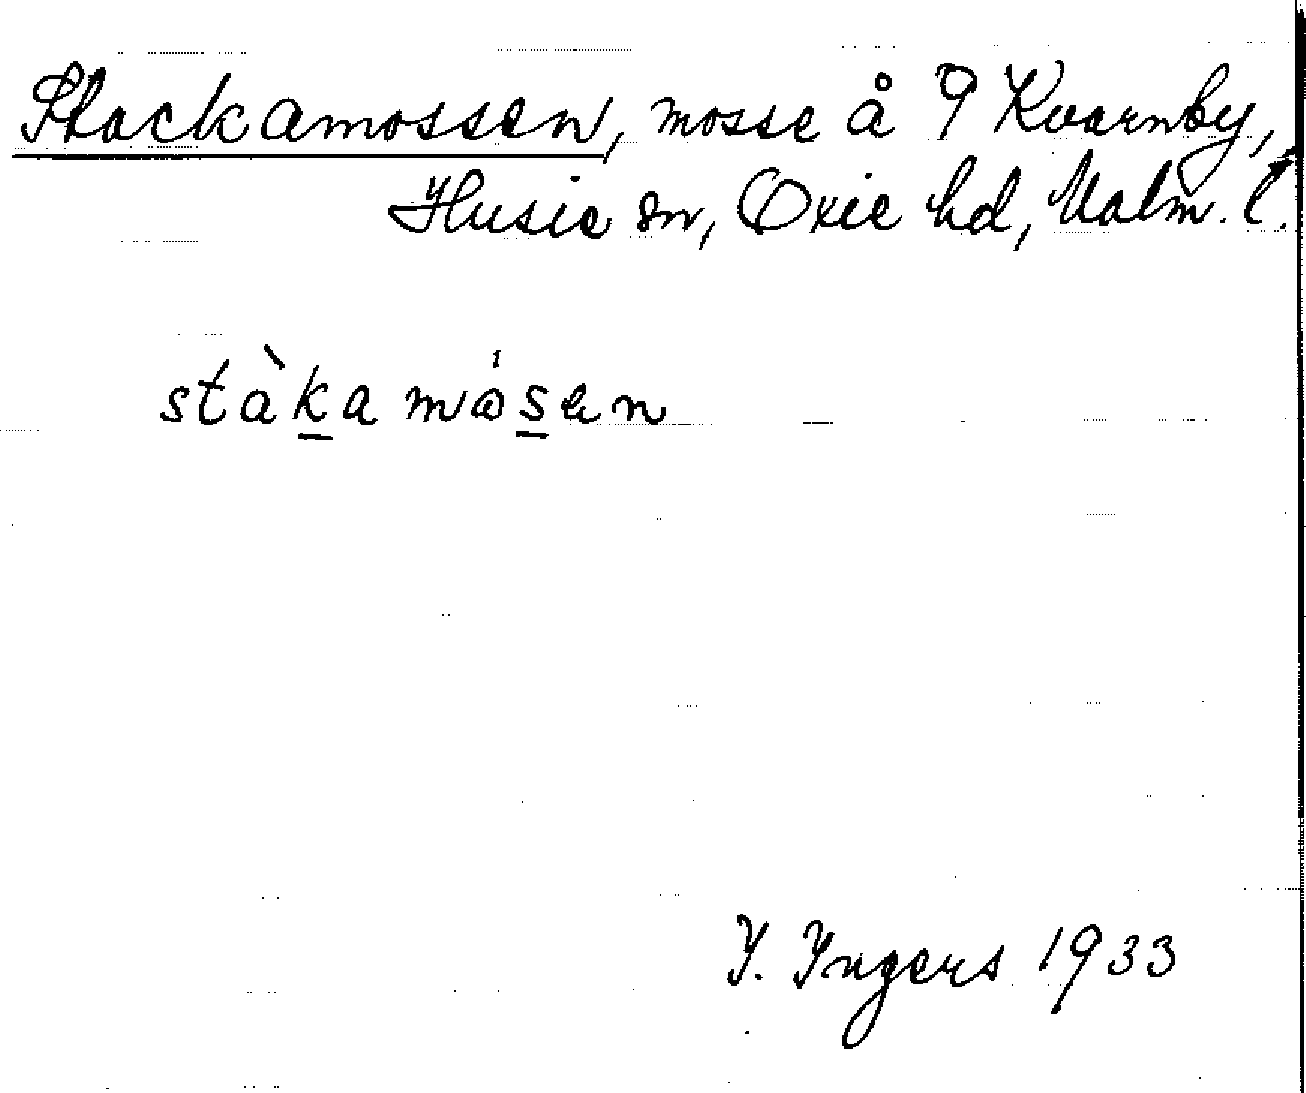 Stockamossen, mosse å 9 Kvarnby,
Husie sn, Oxie hd, Malm. l.
stàka mósen
I. Ingers 1933